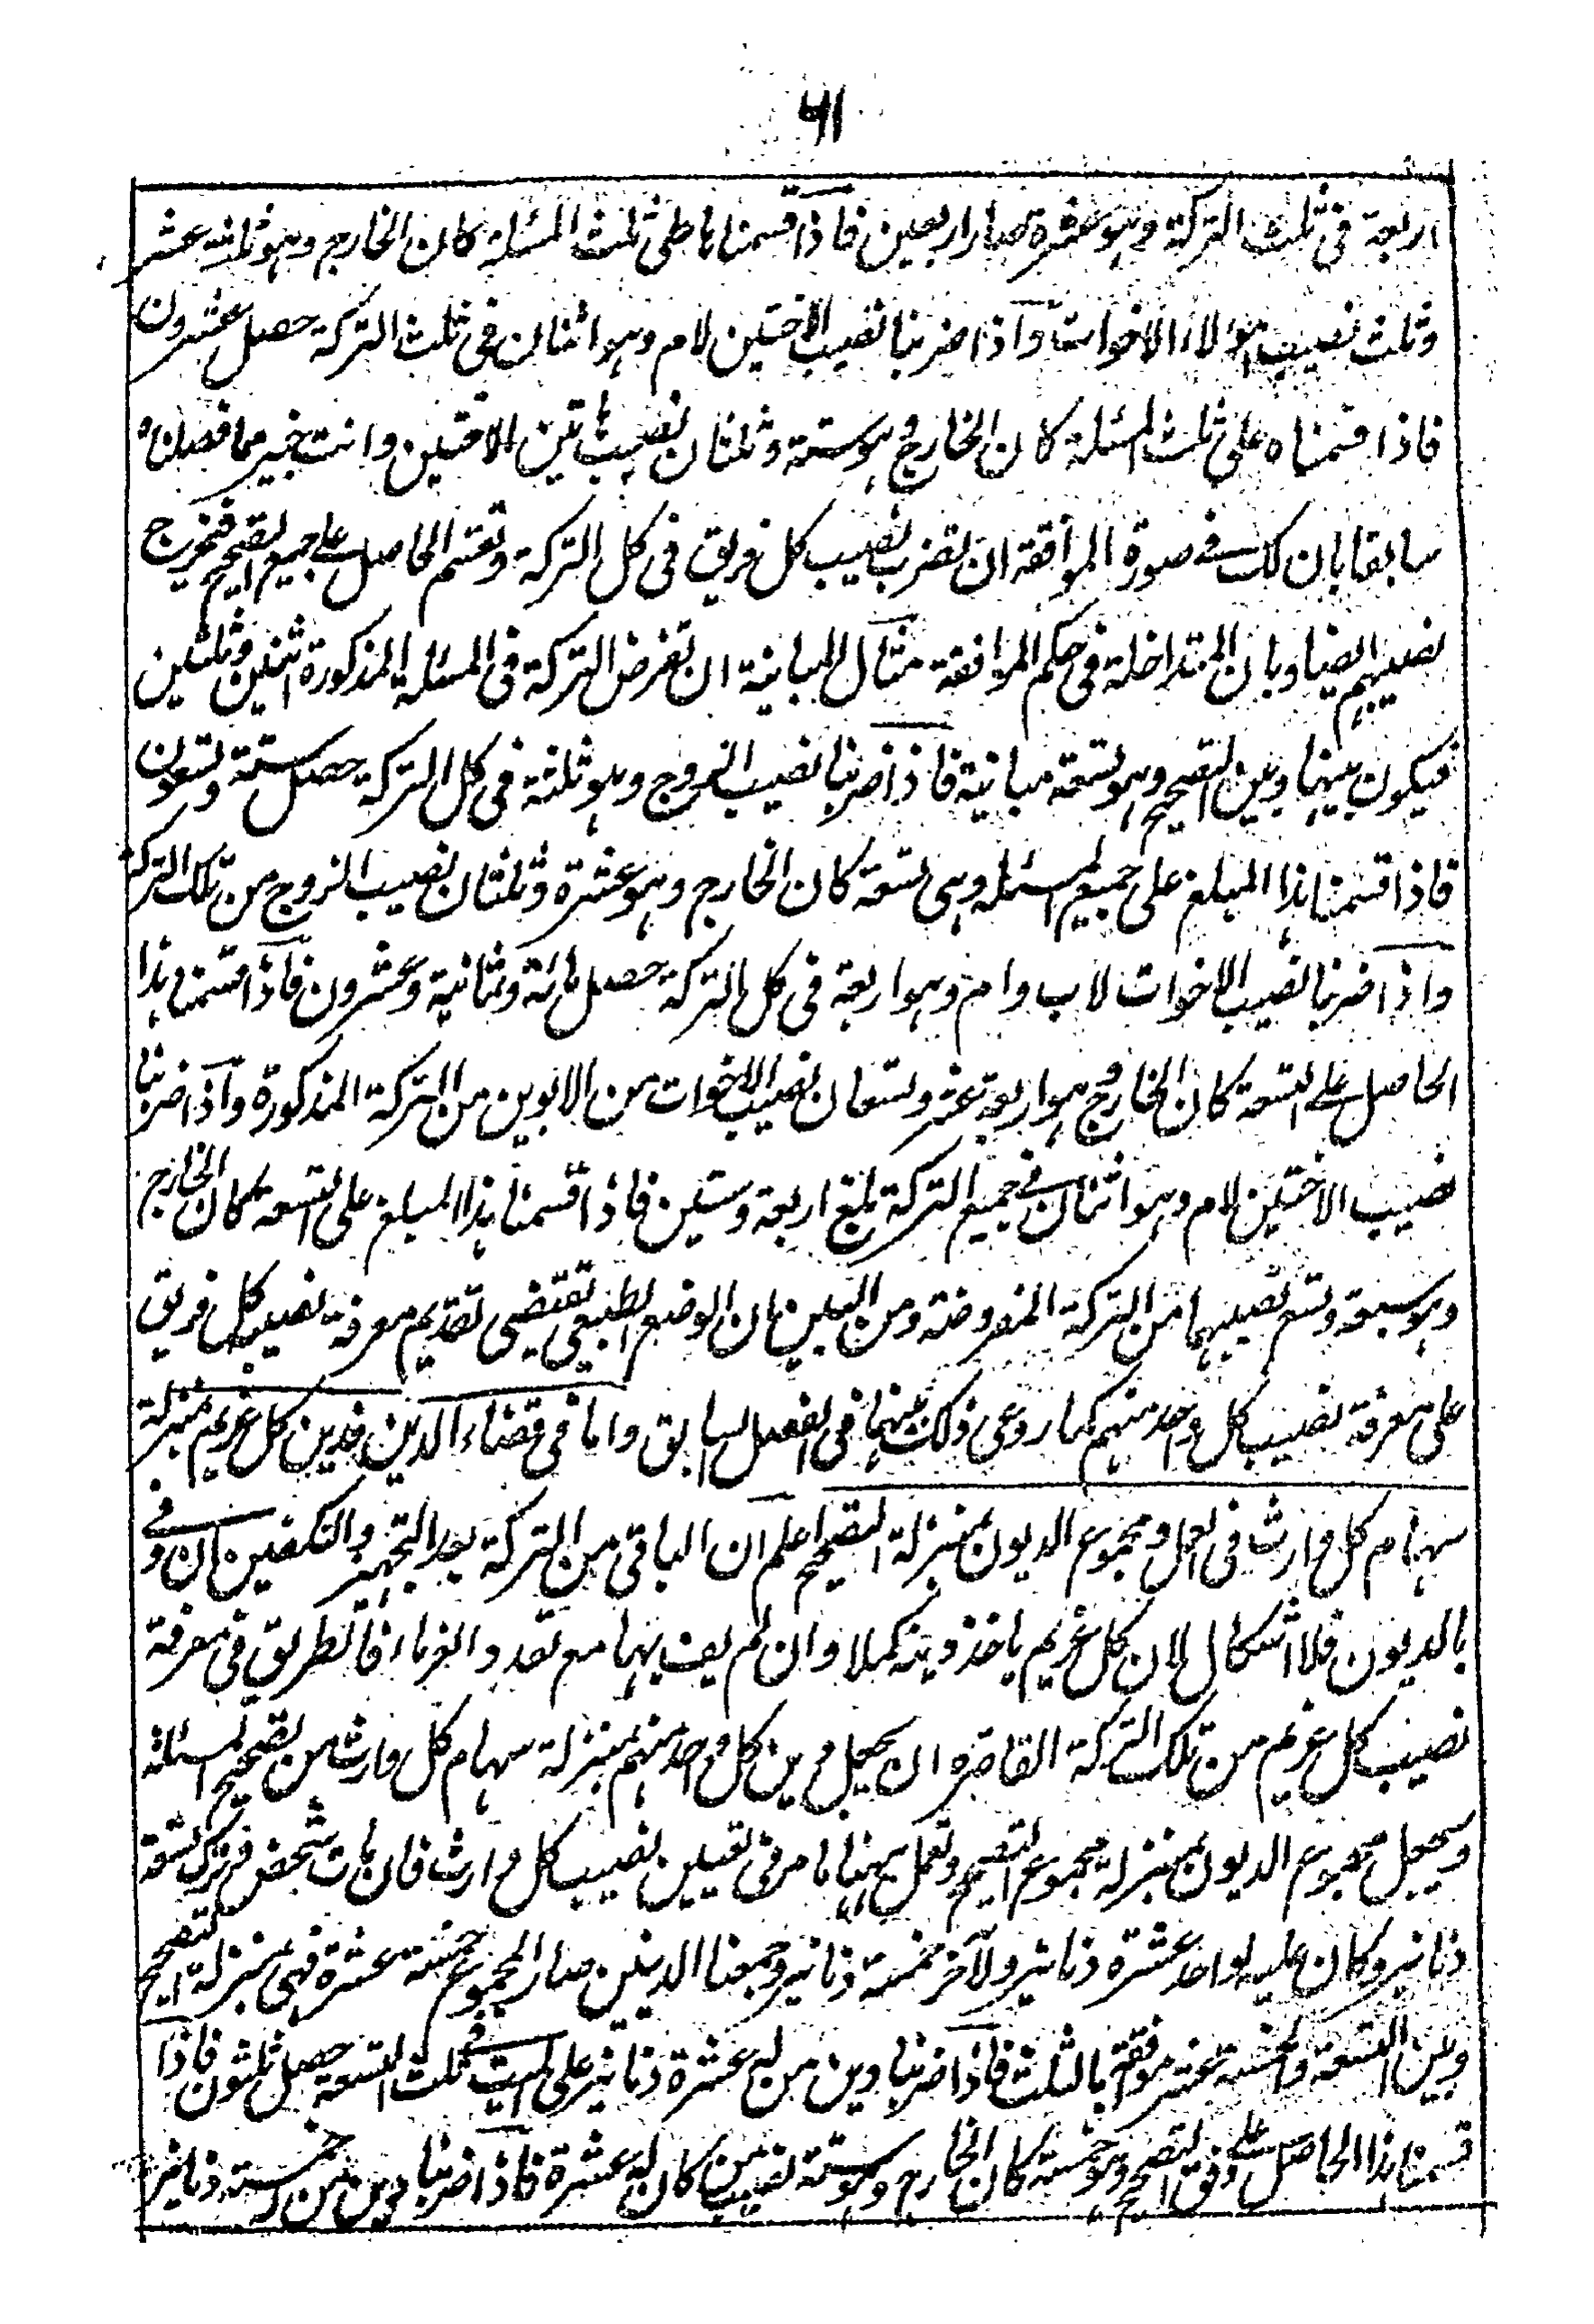 ٦١
اربعة فى ثلث التركة وهو عشرة صار اربعين فاذا قسمناها على ثلث المسئلة كان الخارج وهو ثلثة عشر
وثلث نصيب هؤلاء الاخوات واذا ضربنا نصيب الاختين لام وهو اثنان فى ثلث التركة حصل عشرون
فاذا قسمناه على ثلث المسئلة كان الخارج وهو ستة وثلثان نصيب هاتين الاختين وانت خبير مما فصلناه
سابقا بان لك فى صورة الموافقة ان تضرب نصيب كل فريق فى كل التركة وتقسم الحاصل على جميع التصحيح فيخرج
نصيبهم ايضا وبان المتداخلة فى حكم الموافقة مثال المباينة ان تفرض التركة فى المسئلة المذكورة اثنين وثلثين
فيكون بينها وبين التصحيح وهو تسعة مباينة فاذا ضربنا نصيب الزوج وهو ثلثة فى كل التركة حصل ستة وتسعون
فاذا قسمنا هذا المبلغ على جميع المسئلة وهى تسعة كان الخارج وهو عشرة وثلثان نصيب الزوج من تلك التركة
واذا ضربنا نصيب الاخوات لاب وام وهو اربعة فى كل التركة حصل مائة وثمانية وعشرون فاذا قسمنا هذا
الحاصل على التسعة كان الخارج وهو اربعة عشر وتسعان نصيب الاخوات من الابوين من التركة المذكورة واذا ضربنا
نصيب الاختين لام وهو اثنان فى جميع التركة بلغ اربعة وستين فاذا قسمنا هذا المبلغ على التسعة كان الخارج
وهو سبعة وتسع نصيبهما من التركة المفروضة ومن البين ان الوضع الطبيعى تقتضى تقديم معرفة نصيب كل فريق
على معرفة نصيب كل واحد منهم كما روعى ذلك بينهما فى الفصل السابق واما فى قضاء الدين فدين كل غريم بمنزلة
سهام كل وارث فى العمل ومجموع الديون بمنزلة التصحيح اعلم ان الباقى من التركة بعد التجهيز والتكفين ان وفى
بالديون فلا اشكال لان كل غريم ياخذ دينه كملا وان لم يف بها مع تعدد الغرماء فالطريق فى معرفة
نصيب كل غريم من تلك التركة القاصرة ان يجعل دين كل واحد منهم بمنزلة سهام كل وارث من تصحيح المسئلة
ويجعل مجموع الديون بمنزلة مجموع التصحيح وتعمل ههنا ما مر فى تعيين نصيب كل وارث فان مات شخص وترك تسعة
دنانير وكان عليه لواحد عشرة دنانير ولآخر خمسة دنانير وجمعنا الدينين صار المجموع خمسة عشرة فهى بمنزلة التصحيح
وبين التسعة والخمسة عشر موافقة بالثلث فاذا ضربنا دين من له عشرة دنانير على الميت فى ثلث التسعة حصل ثلثون فاذا
قسمنا هذا الحاصل على وفق التصحيح وهو خمسة كان الخارج وهو ستة نصيب من كان له عشرة فاذا ضربنا دين من له خمسة دنانير